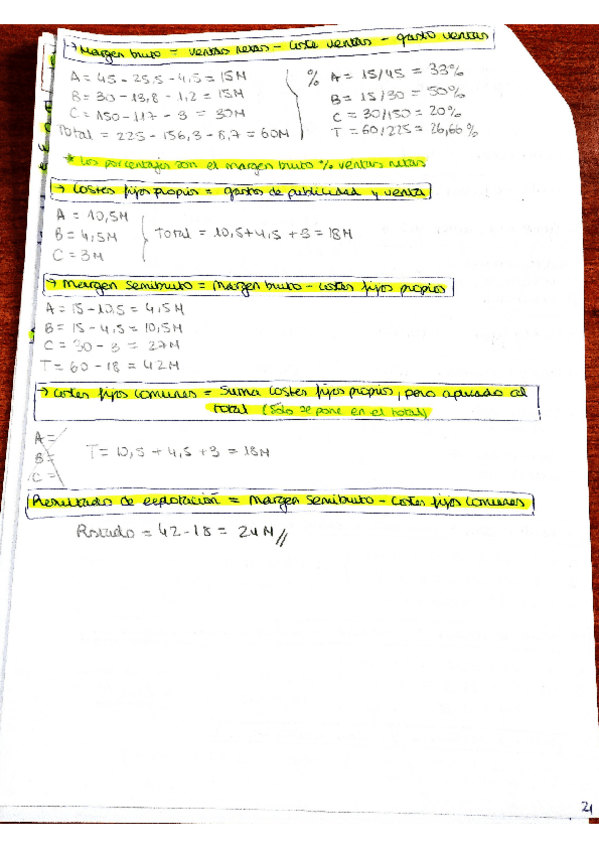 → Margen bruto = ventas netas - coste ventas - gasto ventas
A = 45 - 25,5 - 4,5 = 15M
B = 30 - 13,8 - 1,2 = 15M
C = 150 - 117 - 3 = 30M
Total = 225 - 156,3 - 8,7 = 60M
% A = 15/45 = 33%
B = 15/30 = 50%
C = 30/150 = 20%
T = 60/225 = 26,66%
* Los porcentajes son el margen bruto % ventas netas
→ Costes fijos propios = gastos de publicidad y venta
A = 10,5M
B = 4,5M
C = 3M
Total = 10,5 + 4,5 + 3 = 18M
→ Margen semibruto = Margen bruto - costes fijos propios
A = 15 - 10,5 = 4,5M
B = 15 - 4,5 = 10,5M
C = 30 - 3 = 27M
T = 60 - 18 = 42M
→ Costes fijos comunes = Suma costes fijos propios, pero aplicado al
total (Sólo se pone en el total)
A =
B =
C =
T = 10,5 + 4,5 + 3 = 18M
Resultado de explotación = Margen semibruto - costes fijos comunes
= 42 - 18 = 24M //